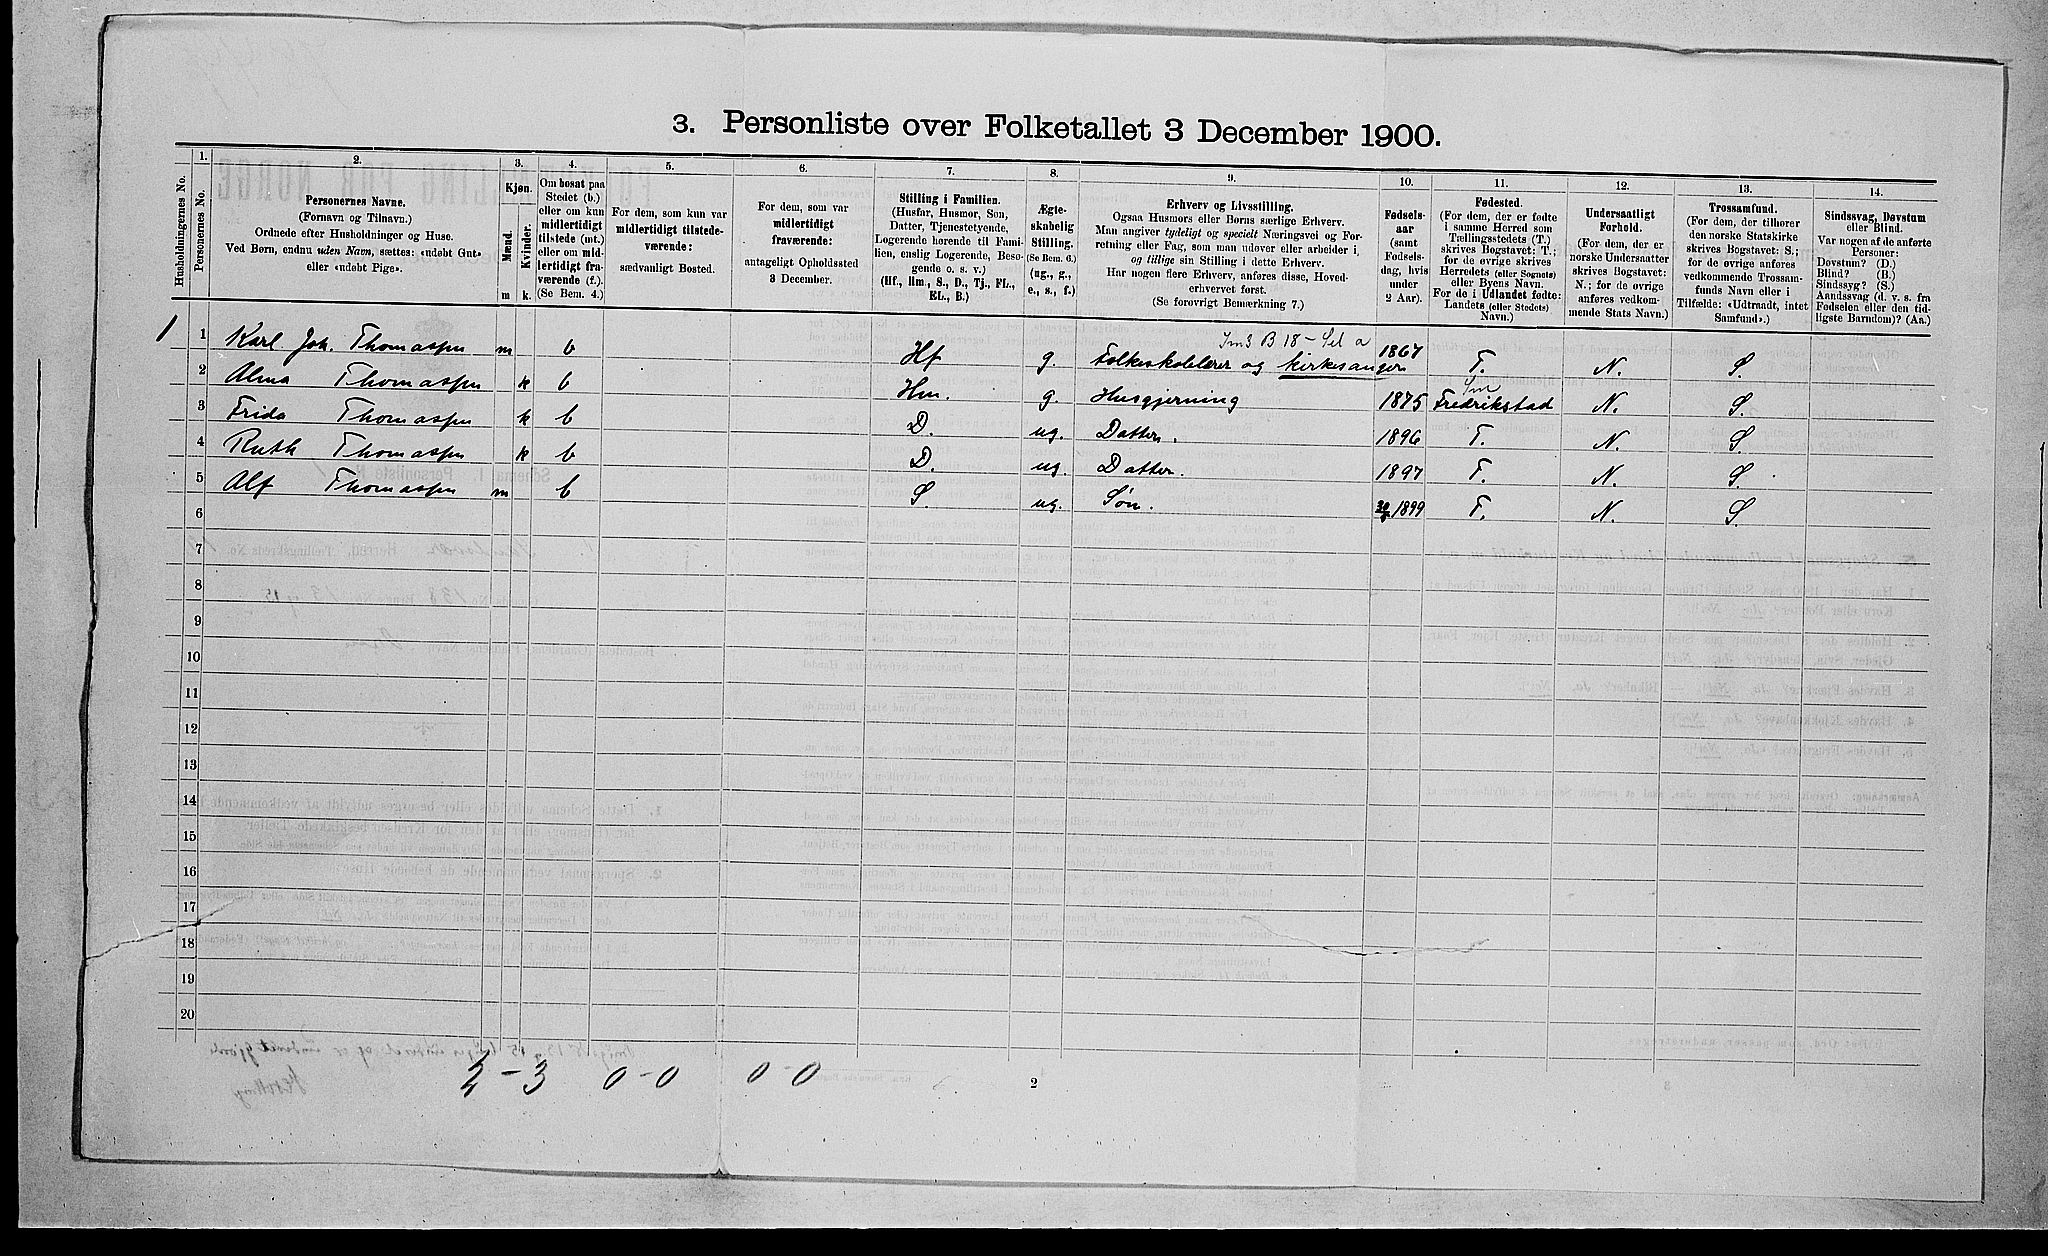 3. Personliste over Folketallet 3 December 1900.
Husholdningernes No.
1.
Personernes No.
2.
Personernes Navne.
(Fornavn og Tilnavn.)
Ordnede efter Husholdninger og Huse.
Ved Børn, endnu uden Navn, sættes: «udøbt Gut»
eller «udøbt Pige».
3.
Kjøn.
Mænd.
Kvinder.
m
k.
4.
Om bosat paa
Stedet (b.)
eller om kun
midlertidigt
tilstede (mt.)
eller om mid-
lertidigt fra-
værende (f.).
(Se Bem. 4.)
5.
For dem, som kun var
midlertidigt tilstede-
værende:
sædvanligt Bosted.
6.
For dem, som var
midlertidigt
fraværende:
antageligt Opholdssted
3 December.
7.
Stilling i Familien.
(Husfar, Husmor, Søn,
Datter, Tjenestetyende,
Logerende hørende til Fami-
lien, enslig Logerende, Besø-
gende o. s. v.)
(Hf., Hm., S., D., Tj., FL.,
EL., B.)
8.
Ægte-
skabelig
Stilling.
(Se Bem. 6.)
(ug., g.,
e., s., f.)
9.
Erhverv og Livsstilling.
Ogsaa Husmors eller Børns særlige Erhverv.
Man angiver tydeligt og specielt Næringsvei og For-
retning eller Fag, som man udøver eller arbeider i,
og tillige sin Stilling i dette Erhverv.
Har nogen flere Erhverv, anføres disse, Hoved-
erhvervet først.
(Se forøvrigt Bemærkning 7.)
10.
Fødsels-
aar
(samt
Fødsels-
dag, hvis
under
2 Aar).
11.
Fødested.
(For dem, der er fødte
i samme Herred som
Tællingsstedets (T.)
skrives Bogstavet: T.;
for de øvrige skrives
Herredets (eller Sognets)
eller Byens Navn.
For de i Udlandet fødte:
Landets (eller Stedets)
Navn.)
12.
Undersaatligt
Forhold.
(For dem, der er
norske Undersaatter
skrives Bogstavet:
N.; for de øvrige
anføres vedkom-
mende Stats Navn.)
13.
Trossamfund.
(For dem, der tilhører
den norske Statskirke
skrives Bogstavet: S.;
for de øvrige anføres
vedkommende Trossam-
funds Navn eller i
Tilfælde: «Udtraadt, intet
Samfund».)
14.
Sindssvag, Døvstum
eller Blind.
Var nogen af de anførte
Personer:
Døvstum? (D.)
Blind? (B.)
Sindssyg? (S.)
Aandssvag (d. v. s. fra
Fødselen eller den tid-
ligste Barndom)? (Aa.)
1 1 Karl Joh. Thomassen m b Hf g. Folkeskolelærer og kirkesanger 1867 T. N. S.
2 Alma Thomassen k b Hm. g. Husgjerning 1875 Fredrikstad N. S.
3 Frida Thomassen k b D. ug. Datter. 1896 T. N. S.
4 Ruth Thomassen k b D. ug. Datter. 1897 T. N. S.
5 Alf Thomassen m b S. ug. Søn. 1899 T. N. S.
6
7
8
9
10
11
12
13
14
15
16
17
18
19
20
2 - 3 0 - 0 0 - 0
2